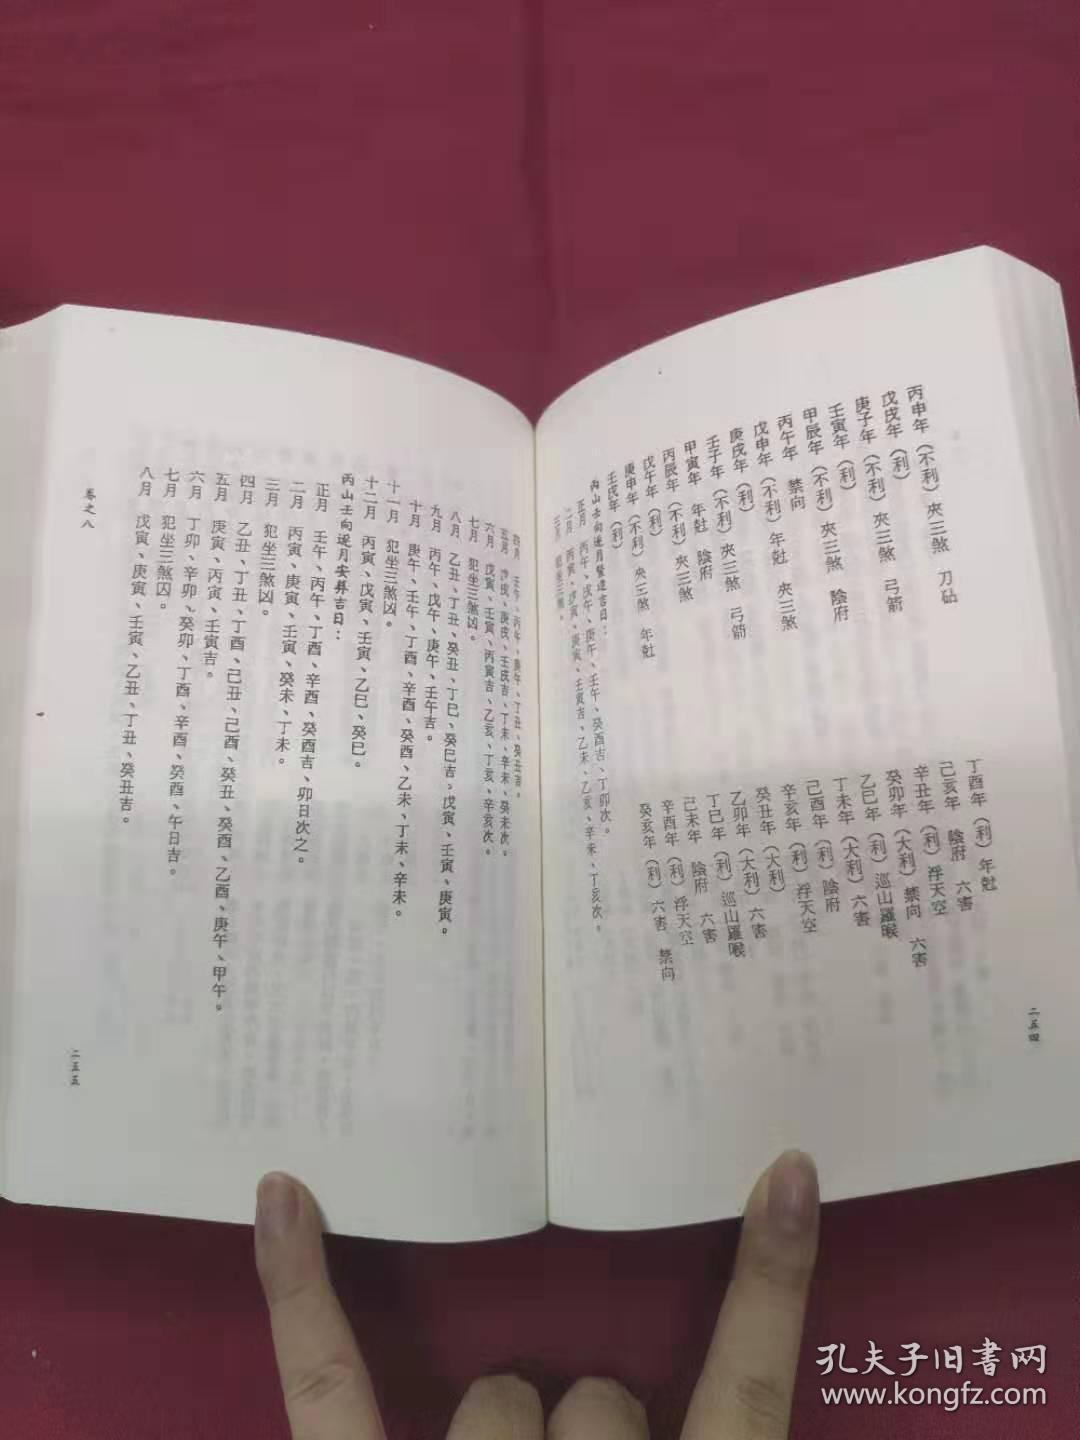 丙申年（不利）夾三煞 刀砧
戊戌年（利）
庚子年（不利）夾三煞 弓箭
壬寅年（利）
甲辰年（不利）夾三煞 陰府
丙午年 禁向
戊申年（不利）年尅 夾三煞
庚戌年（利）
壬子年（不利）夾三煞 弓箭
甲寅年 年尅 陰府
丙辰年（不利）夾三煞
戊午年（利）
庚申年（不利）夾三煞 年尅
壬戌年（利）
丁酉年（利）年尅
己亥年 陰府 六害
辛丑年（利）浮天空
癸卯年（大利）禁向 六害
乙巳年（利）巡山羅睺
丁未年（大利）六害
己酉年（利）陰府
辛亥年（利）浮天空
癸丑年（大利）
乙卯年（大利）六害
丁巳年（利）巡山羅睺
己未年 陰府 六害
辛酉年（利）浮天空
癸亥年（利）六害 禁向
丙山壬向逐月豎造吉日：
正月 丙午、戊午、庚午、壬午、癸酉吉、丁卯次。
二月 丙寅、戊寅、庚寅、壬寅吉、乙未、丁亥、辛未、丁亥次。
三月 犯坐三煞。
二五四
四月 壬午、丙午、庚午、丁丑、癸丑吉。
五月 戊戌、庚戌、壬戌吉、丁未、辛未、癸未次。
六月 戊寅、壬寅、丙寅吉、乙亥、丁亥、辛亥次。
七月 犯坐三煞凶。
八月 乙丑、丁丑、癸丑、丁巳、癸巳吉，戊寅、壬寅、庚寅。
九月 丙午、戊午、庚午、壬午吉。
十月 庚午、壬午、丁酉、辛酉、癸酉、乙未、丁未、辛未。
十一月 犯坐三煞凶。
十二月 丙寅、戊寅、壬寅、乙巳、癸巳。
丙山壬向逐月安葬吉日：
正月 壬午、丙午、丁酉、辛酉、癸酉吉、卯日次之。
二月 丙寅、庚寅、壬寅、癸未、丁未。
三月 犯坐三煞凶。
四月 乙丑、丁丑、丁酉、己丑、己酉、癸丑、癸酉、乙酉、庚午、甲午。
五月 庚寅、丙寅、壬寅吉。
六月 丁卯、辛卯、癸卯、丁酉、辛酉、癸酉、午日吉。
七月 犯坐三煞凶。
八月 戊寅、庚寅、壬寅、乙丑、丁丑、癸丑吉。
卷之八
二五五
孔夫子旧書网
www.kongfz.com